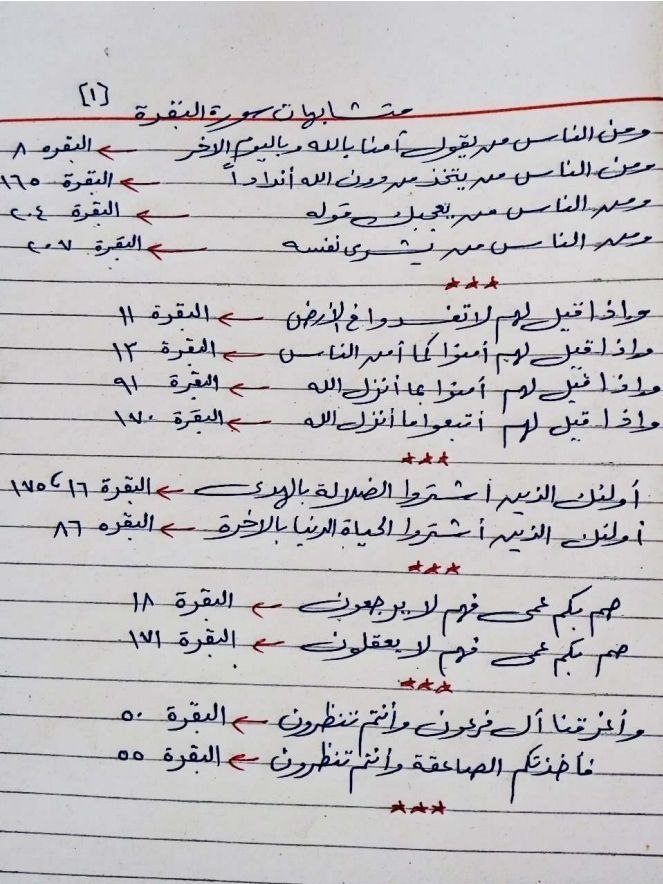 [١]
متشابهات سورة البقرة
ومن الناس من يقول آمنا بالله وباليوم الاخر ← البقره ٨
ومن الناس من يتخذ من دون الله أنداداً ← البقرة ١٦٥
ومن الناس من يعجبك قوله ← البقرة ٢٠٤
ومن الناس من يشرى نفسه ← البقرة ٢٠٧
★★★
واذا قيل لهم لا تفسدوا في الأرض ← البقرة ١١
واذا قيل لهم أمنوا كما أمن الناس ← البقرة ١٣
واذا قيل لهم أمنوا بما أنزل الله ← البقرة ٩١
واذا قيل لهم أتبعوا ما أنزل الله ← البقرة ١٧٠
★★★
أولئك الذين أشتروا الضلالة بالهدى ← البقرة ١٦، ١٧٥
أولئك الذين أشتروا الحياة الدنيا بالاخرة ← البقره ٨٦
★★★
صم بكم عمى فهم لا يرجعون ← البقرة ١٨
صم بكم عمى فهم لا يعقلون ← البقرة ١٧١
★★★
وأغرقنا أل فرعون وأنتم تنظرون ← البقرة ٥٠
فأخذتكم الصاعقة وأنتم تنظرون ← البقرة ٥٥
★★★